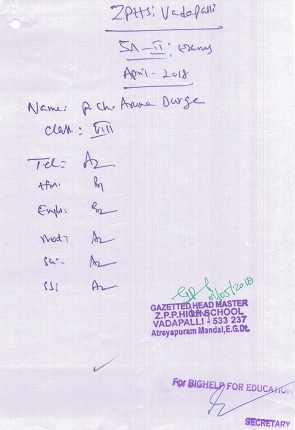 ZPHS: Vadapalli
SA-II: Exams
April-2018
Name: P. Ch. Aruna Durga
Class: VIII
Tel: A2
Hin: B1
Eng: B2
Mat: A2
Sci: A2
SS: A2
01/05/2018
GAZETTED HEAD MASTER
Z.P.P.HIGH SCHOOL
VADAPALLI - 533 237
Atreyapuram Mandal, E.G.Dt.
For BIGHELP FOR EDUCATION
SECRETARY